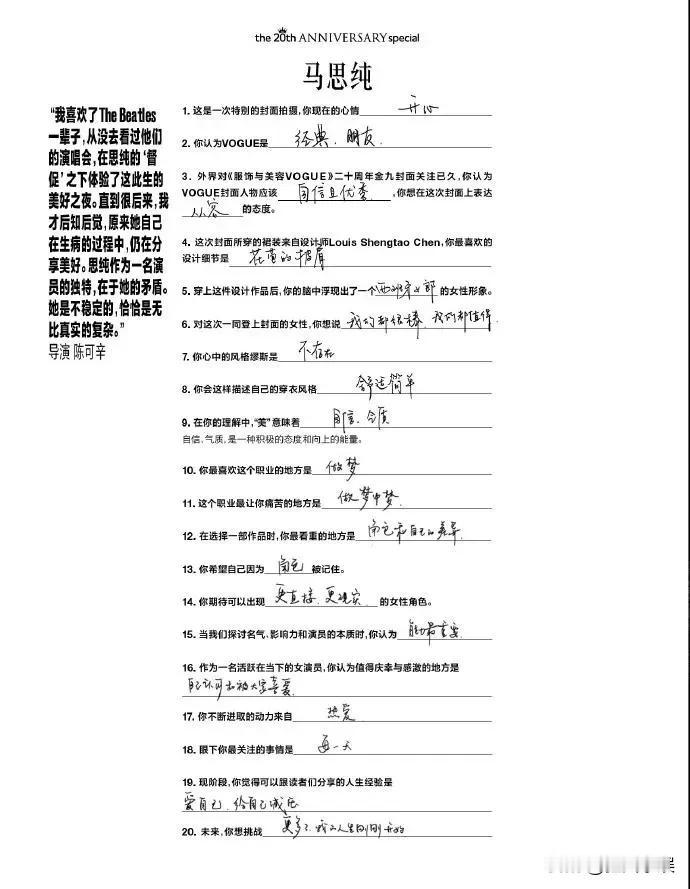 the 20th ANNIVERSARY special
马思纯
“我喜欢了The Beatles
一辈子，从没去看过他们
的演唱会，在思纯的‘督
促’之下体验了这此生的
美好之夜。直到很后来，我
才后知后觉，原来她自己
在生病的过程中，仍在分
享美好。思纯作为一名演
员的独特，在于她的矛盾。
她是不稳定的，恰恰是无
比真实的复杂。”
导演 陈可辛
1. 这是一次特别的封面拍摄，你现在的心情 开心
2. 你认为VOGUE是 经典、朋友
3. 外界对《服饰与美容VOGUE》二十周年金九封面关注已久，你认为
VOGUE封面人物应该 自信且优秀 ，你想在这次封面上表达
从容 的态度。
4. 这次封面所穿的裙装来自设计师Louis Shengtao Chen，你最喜欢的
设计细节是 花苞的披肩
5. 穿上这件设计作品后，你的脑中浮现出了一个 西班牙女郎 的女性形象。
6. 对这次一同登上封面的女性，你想说 我们都很棒，我们都值得
7. 你心中的风格缪斯是 不存在
8. 你会这样描述自己的穿衣风格 舒适简单
9. 在你的理解中，“美”意味着 自信、气质
自信、气质，是一种积极的态度和向上的能量。
10. 你最喜欢这个职业的地方是 做梦
11. 这个职业最让你痛苦的地方是 做梦中梦
12. 在选择一部作品时，你最看重的地方是 角色和自己的差异
13. 你希望自己因为 角色 被记住。
14. 你期待可以出现 更直接、更现实 的女性角色。
15. 当我们探讨名气、影响力和演员的本质时，你认为 最重要
16. 作为一名活跃在当下的女演员，你认为值得庆幸与感激的地方是
自己认可和被大家喜爱
17. 你不断进取的动力来自 热爱
18. 眼下你最关注的事情是 每一天
19. 现阶段，你觉得可以跟读者们分享的人生经验是
爱自己，给自己减压
20. 未来，你想挑战 更多，我的人生刚刚开始